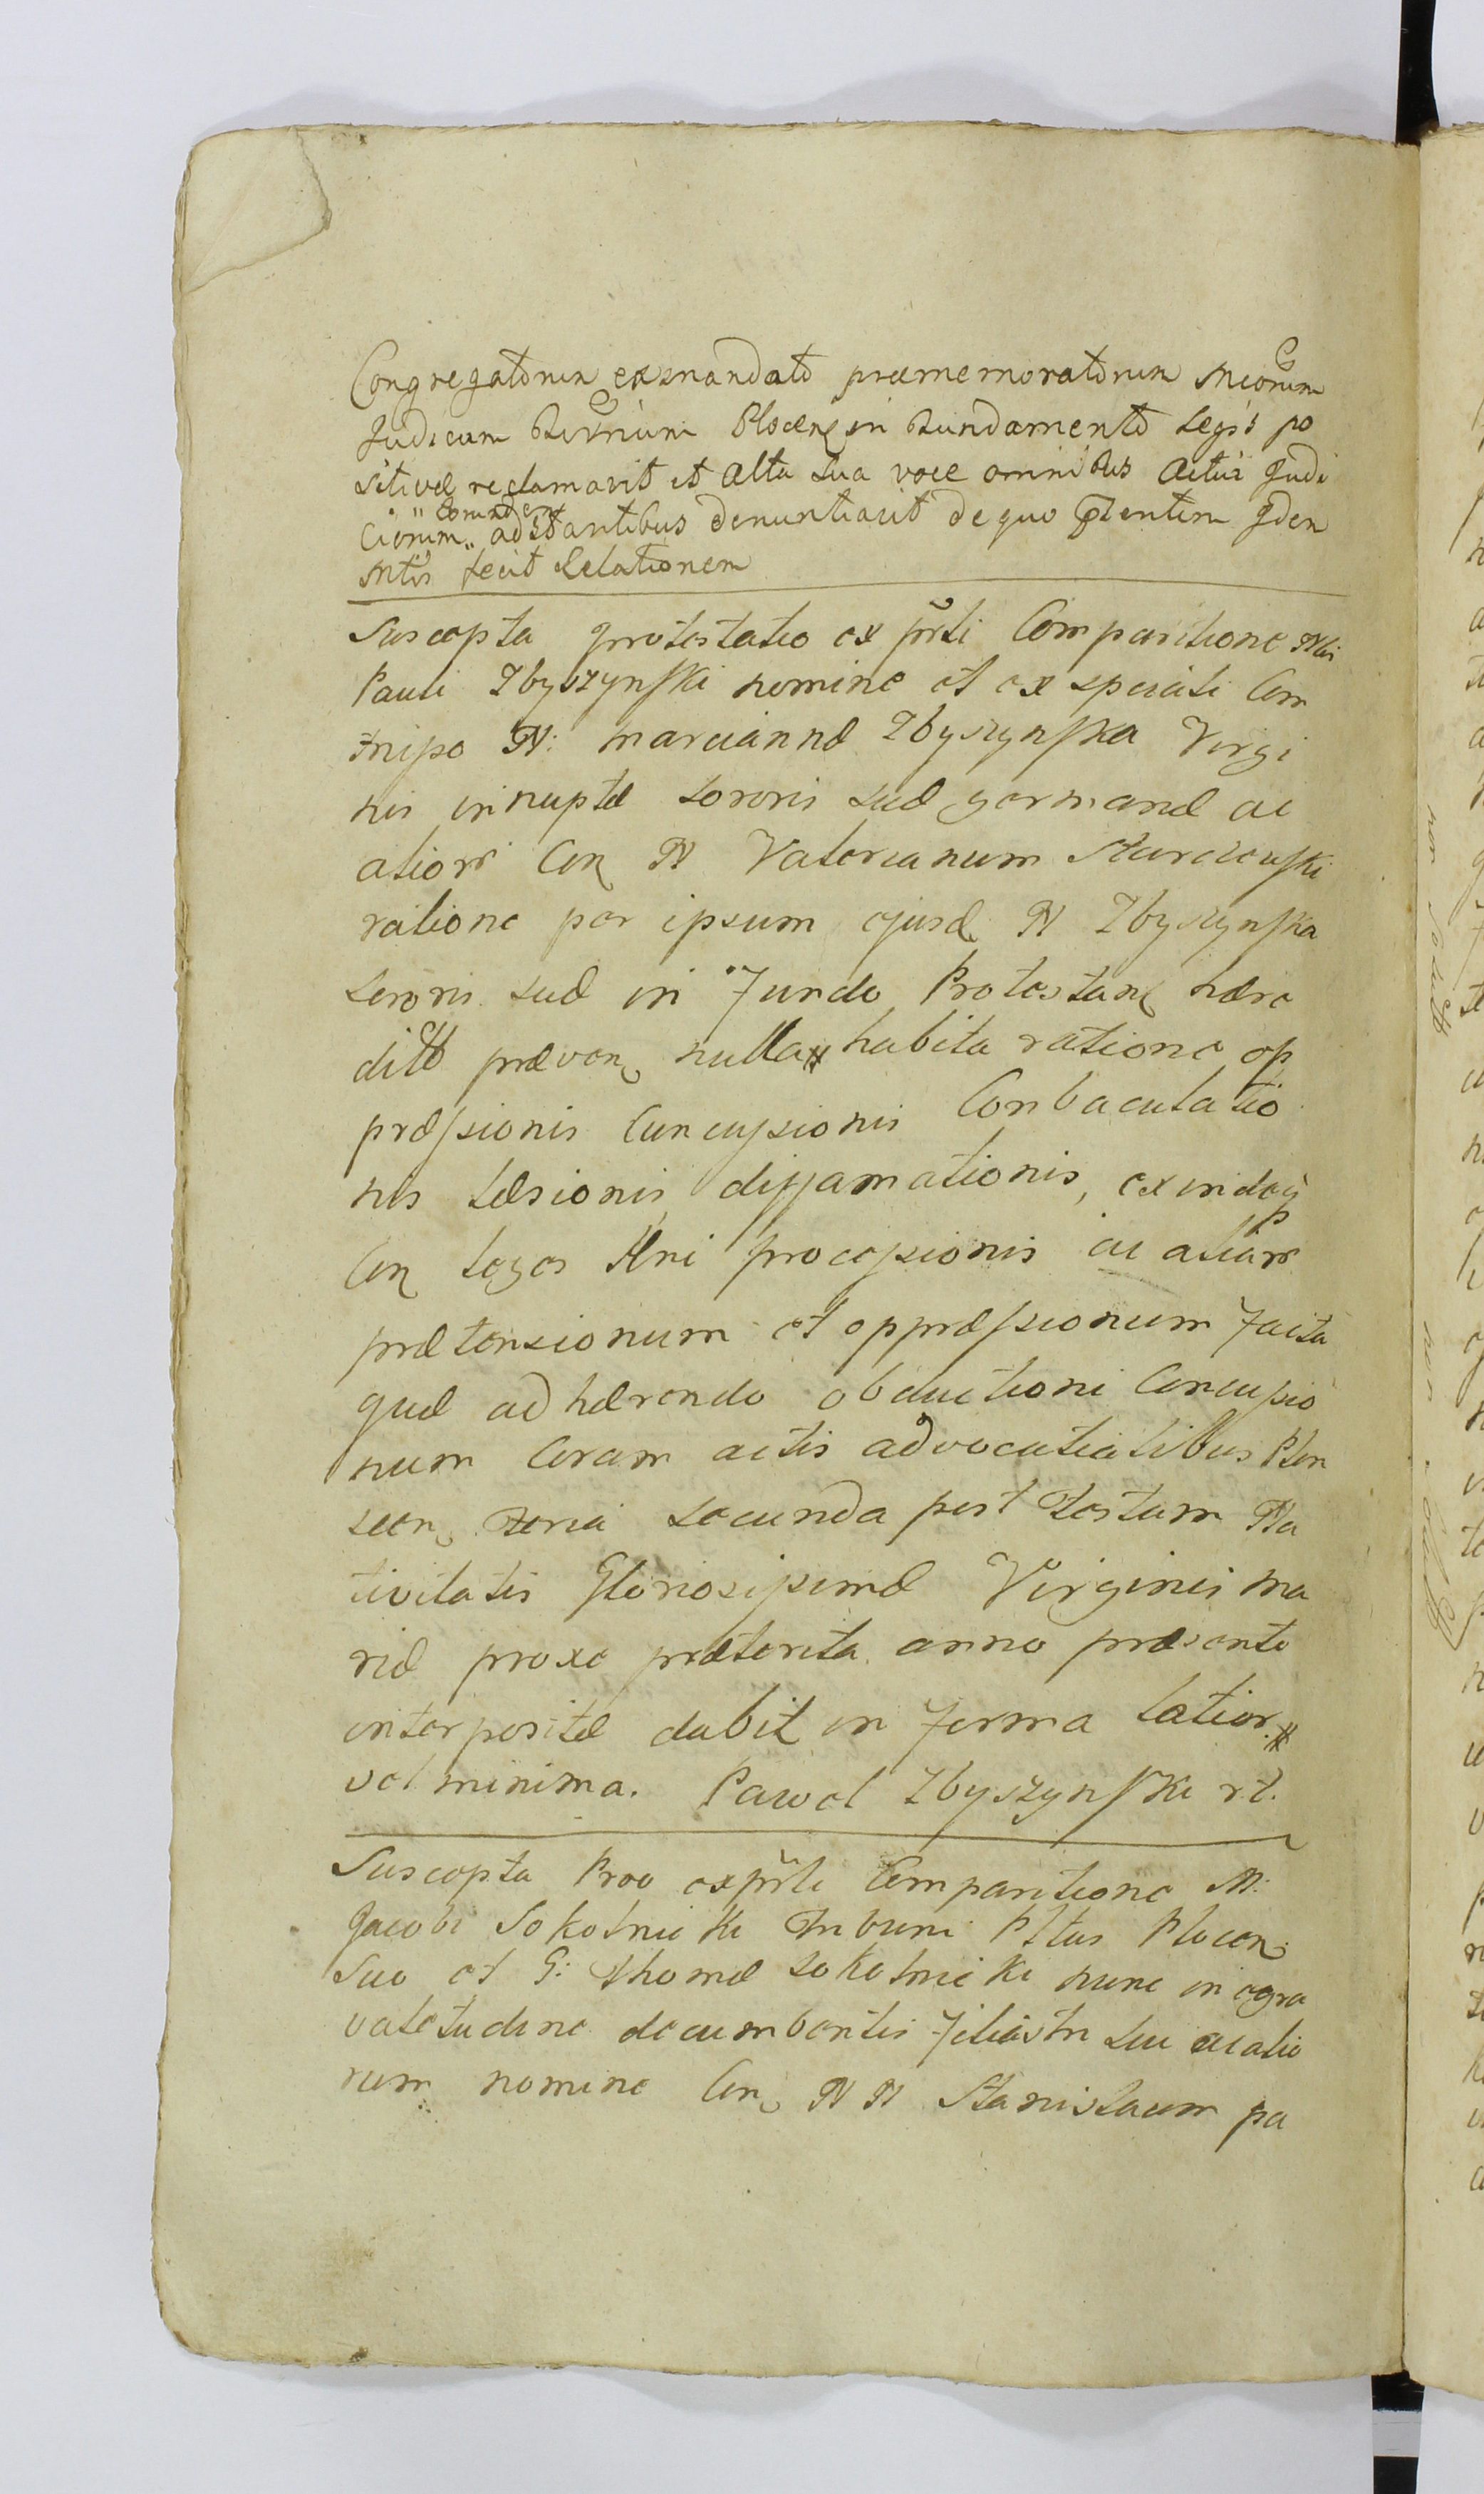 Congregatorum ex mandato præmemoratorum Mcorum
Judicum Terrium Plocen in Fundamento Legis po
sitivæ reclamavit et Alta sua voce omnibus Actui Judi
ciorum „ eorundem „ adstantibus denuntiavit de quo
fecit Relationem
Suscepta protestatio ex prsti Comparitione Nbi
Pauli Zbyszynski nomine et ex speciali Com
misso N: Marciannæ Zbyszynska Virgi
nis innuptæ Sororis suæ germanæ ac
aliorr Con N Valerianum
ratione per ipsum ejusd N Zbyszynska
Sororis suæ in Fundo Protestan hære
ditt præven nulla habita ratione op
præssionis Concussionis Conbaculatio
nis læsionis, diffamationis, exindeq
Con leges Rni processionis ac aliarr
prætensionum et oppræssionum facta
quæ adhærendo obductioni Concussio
num Coram actis advocatialibus Plon
scen Feria secunda post Festum Na
tivitatis Gloriosissimæ Virginis Ma
riæ proxe præterita anno præsente
interpositæ dabit in Forma latiori
vel minima. Pawel Zbyszynski
Suscepta Pro ex prsti Comparitione M:
Jacobi Sokolnicki Tribuni Pltus Plocen
suo et G: Thomæ Sokolnicki nunc in ægra
valetudine decumbentis Filiastri sui ac alio
rum nomine Con N N Stanislaum pa